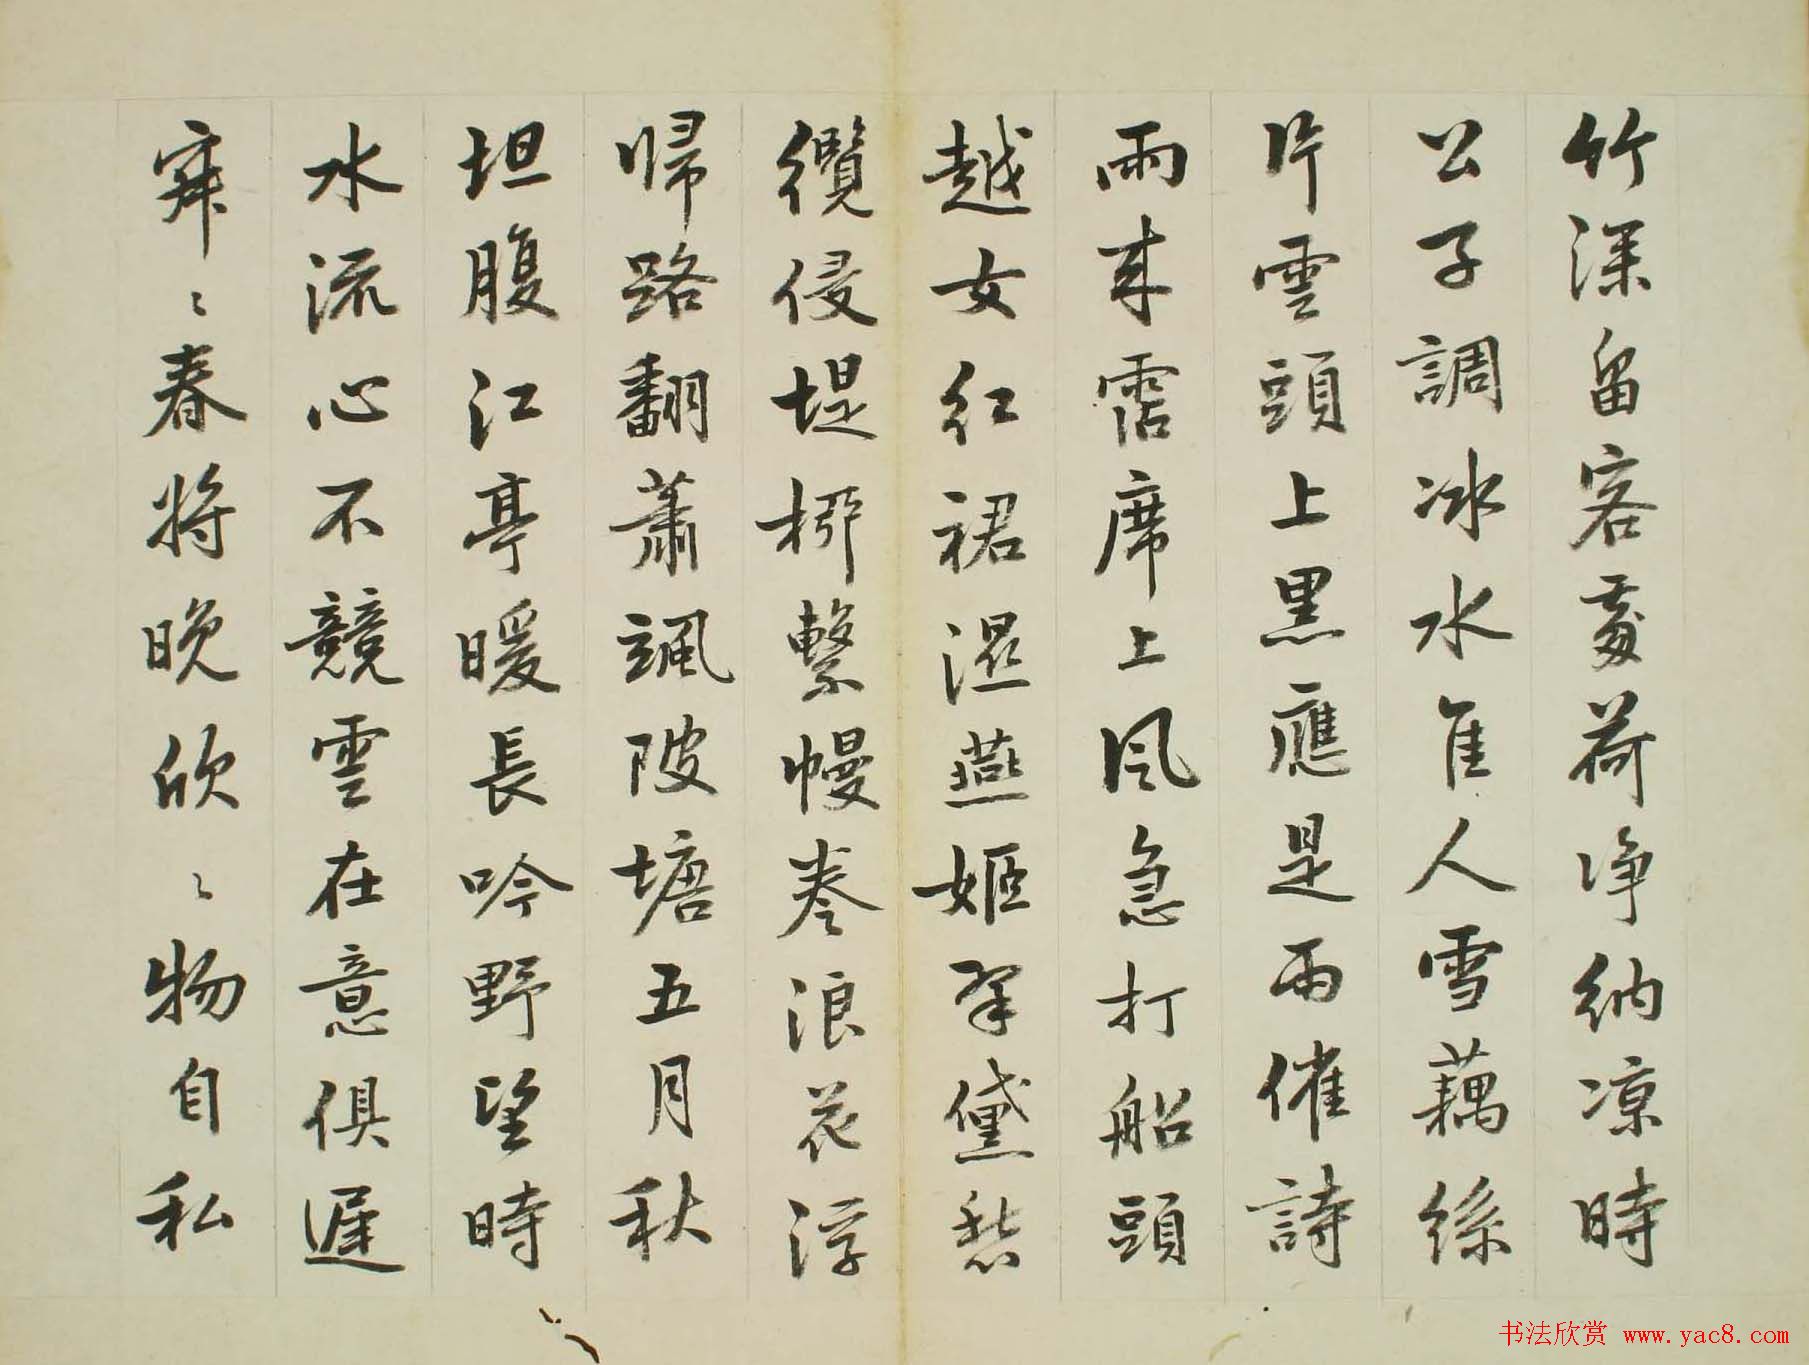 竹深留客處荷净納凉時
公子調冰水隹人雪藕絲
片雲頭上黑應是雨催詩
雨來霑席上風急打船頭
越女紅裙濕燕姬翠黛愁
纜侵堤栁繫幔卷浪花浮
歸路翻蕭颯陂塘五月秋
坦腹江亭暖長吟野望時
水流心不競雲在意俱遲
寂〻春將晚欣〻物自私
书法欣赏 www.yac8.com